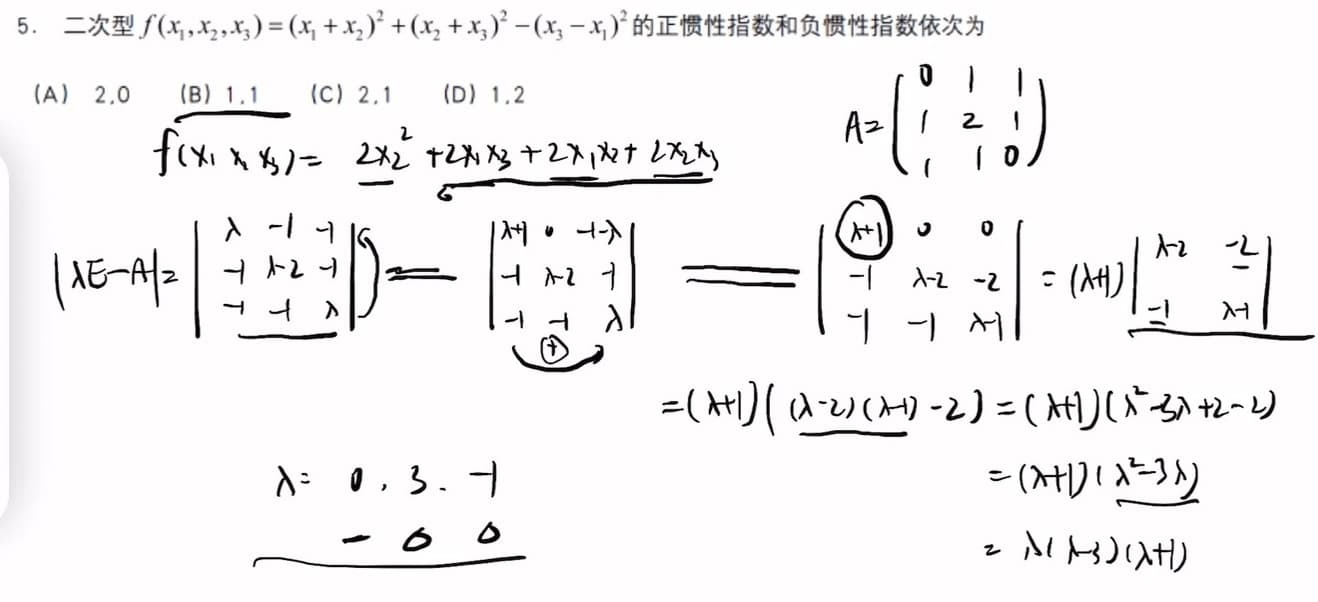 5. 二次型 f(x₁,x₂,x₃)=(x₁+x₂)²+(x₂+x₃)²-(x₃-x₁)²的正惯性指数和负惯性指数依次为
(A) 2,0 (B) 1,1 (C) 2,1 (D) 1,2
f(x₁ x₂ x₃)= 2x₂²+2x₁x₃+2x₁x₂+2x₂x₃
A=
0 1 1
1 2 1
1 1 0
|λE-A|=
λ -1 -1
-1 λ-2 -1
-1 -1 λ
=
λ+1 0 -1-λ
-1 λ-2 -1
-1 -1 λ
(+)
=
λ+1 0 0
-1 λ-2 -2
-1 -1 λ-1
=(λ+1)
λ-2 -2
-1 λ-1
=(λ+1)((λ-2)(λ-1)-2)=(λ+1)(λ²-3λ+2-2)
=(λ+1)(λ²-3λ)
=λ(λ-3)(λ+1)
λ= 0, 3. -1
- 0 0